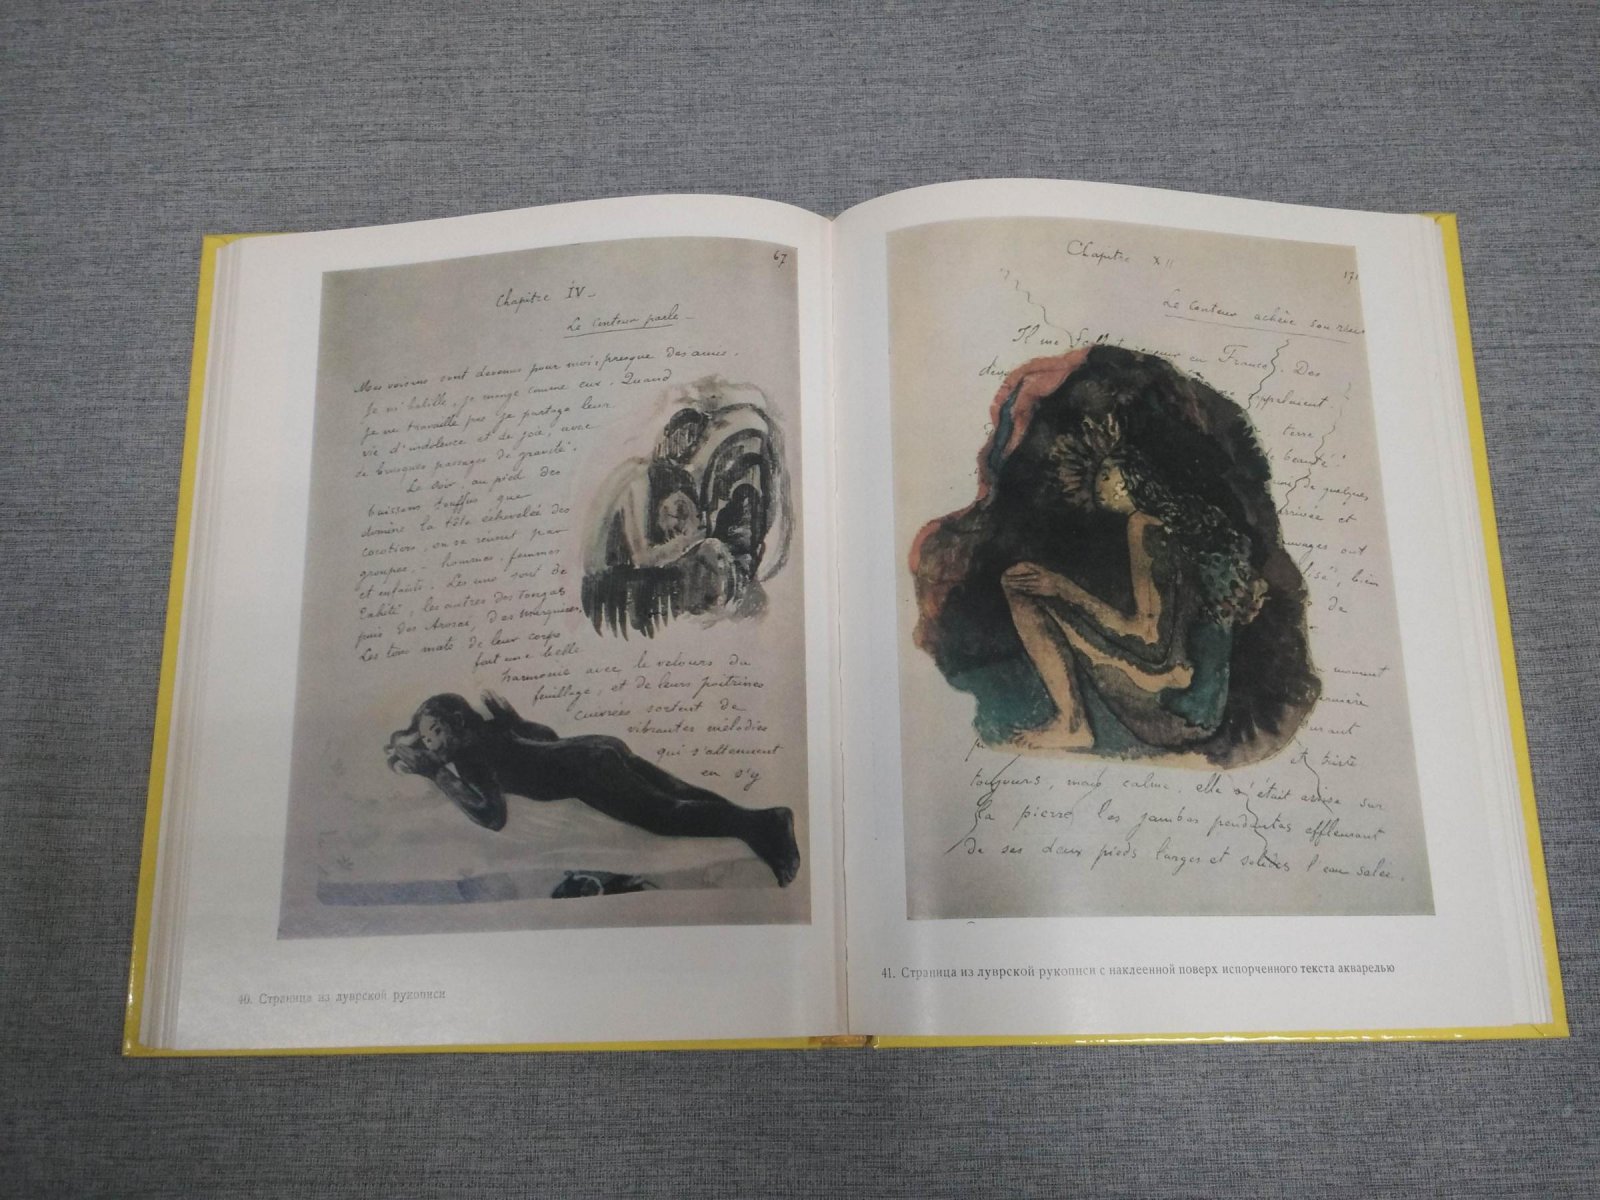 67
Chapitre IV_
Le Conteur parle_
Mes voisins sont devenus pour moi, presque des amis.
Je m'habille, je mange comme eux. Quand
je ne travaille pas je partage leur
vie d'indolence et de joie, avec
de brusques passages de gravité.
Le soir, au pied des
buissons touffus que
domine la tête échevelée des
cocotiers, on se réunit par
groupes, - hommes, femmes
et enfants. Les uns sont de
Tahiti, les autres des Tongas
puis des Arorai, des Marquises.
Les tons mats de leur corps
font une belle
harmonie avec le velours du
feuillage, et de leurs poitrines
cuivrées sortent de
vibrantes mélodies
qui s'atténuent
en s'y
40. Страница из луврской рукописи
Chapitre XII
171
Le Conteur achève son récit
Il me en France. Des
terre
de beauté
de quelques
arrivée et
ont
bien
de
moment
durant
et triste
toujours, mais calme, elle s'était assise sur
la pierre, les jambes pendantes effleurant
de ses deux pieds larges et solides l'eau salée.
41. Страница из луврской рукописи с наклеенной поверх испорченного текста акварелью